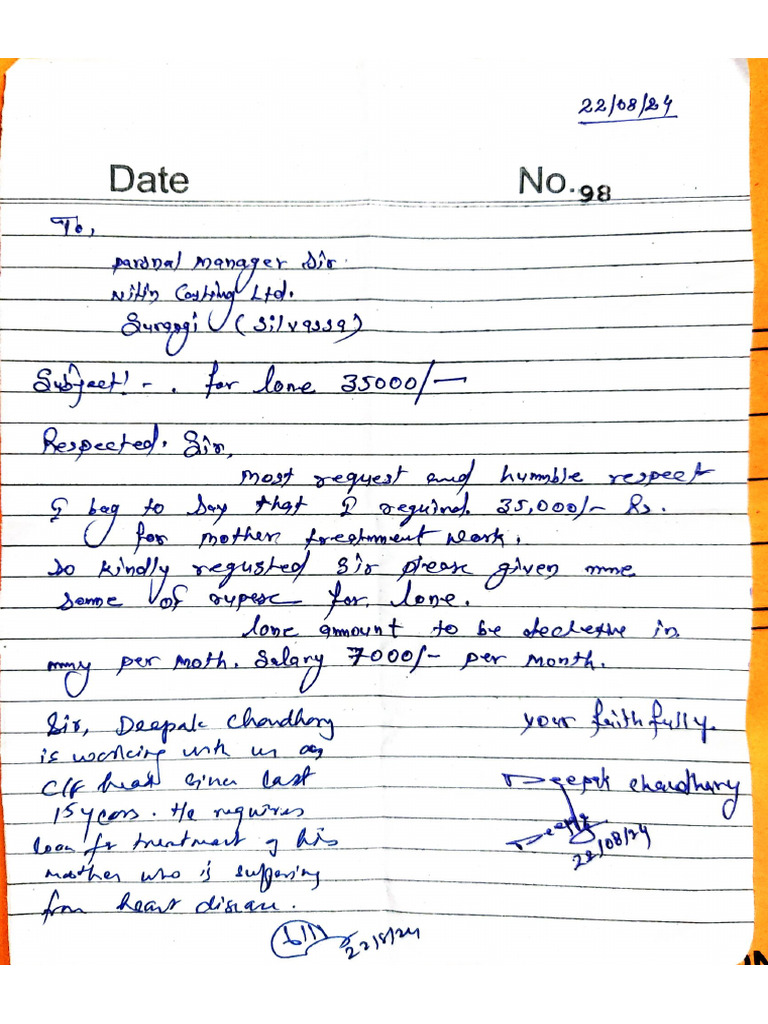 22/08/24
Date No. 98
To,
parsnal manager Sir.
Nitin Casting Ltd.
Surangi (Silvassa)
Subject:- . for lone 35000/-
Respected. Sir,
most request and hummble respect
I bag to say that I requind. 35,000/- Rs.
for mother treatmment work.
so kindly requsted Sir please given mme
some of rupese for. lone.
lone ammount to be dectetive in
mmy per moth. Salary 7000/- per month.
Sir, Deepak Choudhary
is working with us as
C/F head since last
15 years. He requires
loan for treatment of his
mother who is suffering
from heart disease.
22/8/24
your faithfully.
Deepak chaudhary
Deepak
22/08/24